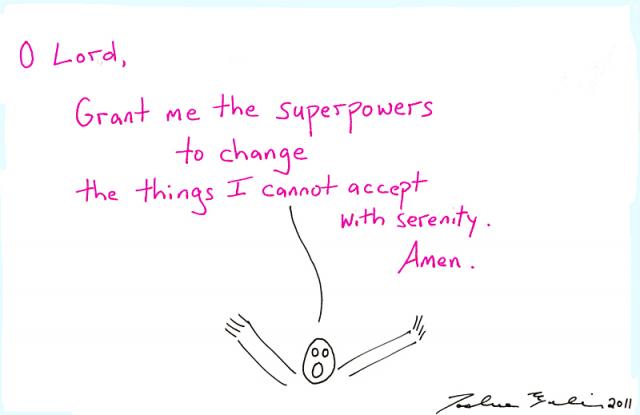 O Lord,
Grant me the superpowers
to change
the things I cannot accept
with serenity.
Amen.
2011